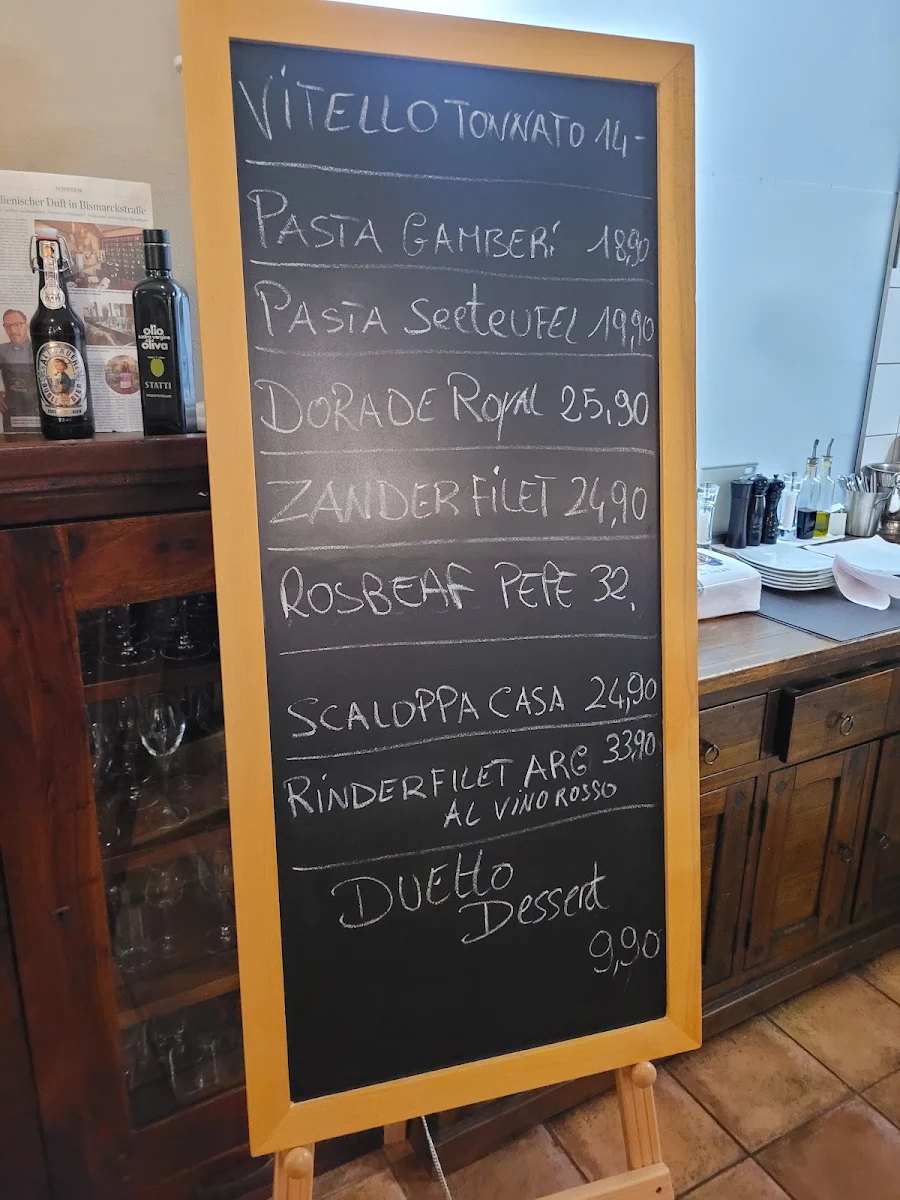 VITELLO TONNATO 14-
PASTA GAMBERI 18,90
PASTA SeeteUFEL 19,90
DORADE ROYAL 25,90
ZANDERFILET 24,90
ROSBEAF PEPE 32,
SCALOPPA CASA 24,90
RINDERFILET ARG 33,90
AL VINO ROSSO
DUEtto
Dessert
9,90
SCHWELM
lienischer Duft in Bismarckstraße
olio
extra vergine
di oliva
STATTI